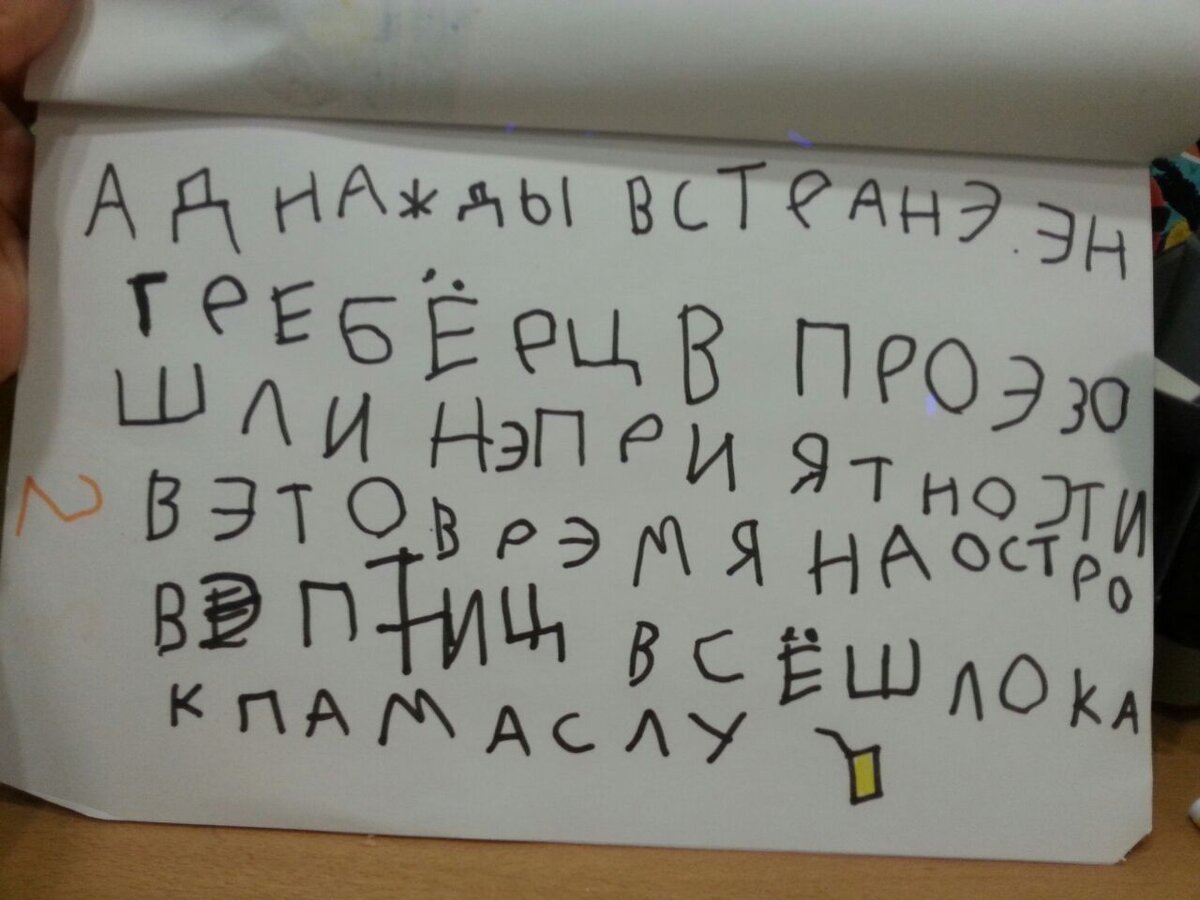 АДНАЖДЫ ВСТРАНЭ. ЭН
ГРЕБЁРЦ В ПРОЭЗО
ШЛИ НЭПРИЯТНОЭТИ
2 ВЭТО ВРЭМЯ НАОСТРО
ВЕ ПТИЦ ВСЁШЛОКА
К ПАМАСЛУ